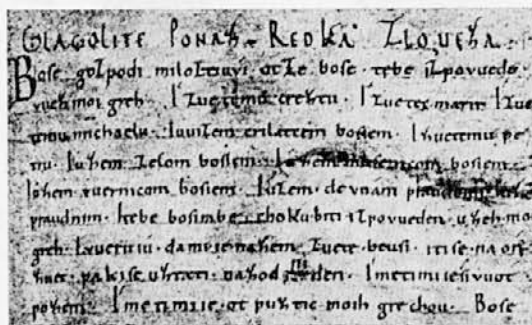 GLAGOLITE PONAZ. REDKA ZLOUEZA.
Bose gozpodi miloztivvi. otze bose. tebe izpovuede.
vuez moi greh. I zuetemu creztu. I zuetei marii. I zue
temu michaelu. Iuuizem crilatcem bosiem. I zuetemu pe
tru. Iuzem zelom bosiem. Iuzem bosiem.
Iuzem vuernicom bosiem. Iuzem. devuam
praudnim. Itebe bosirabe. chokubiti izpovueden. uzeh. mo
greh. Ivueruiu. damiie nazem. zuete. beusi. itise. na on
zuet. pakise uztati. nazodni den. Imetimiie sivuot
pozem. Imetimiie. otpuztic moih grechou. Bose